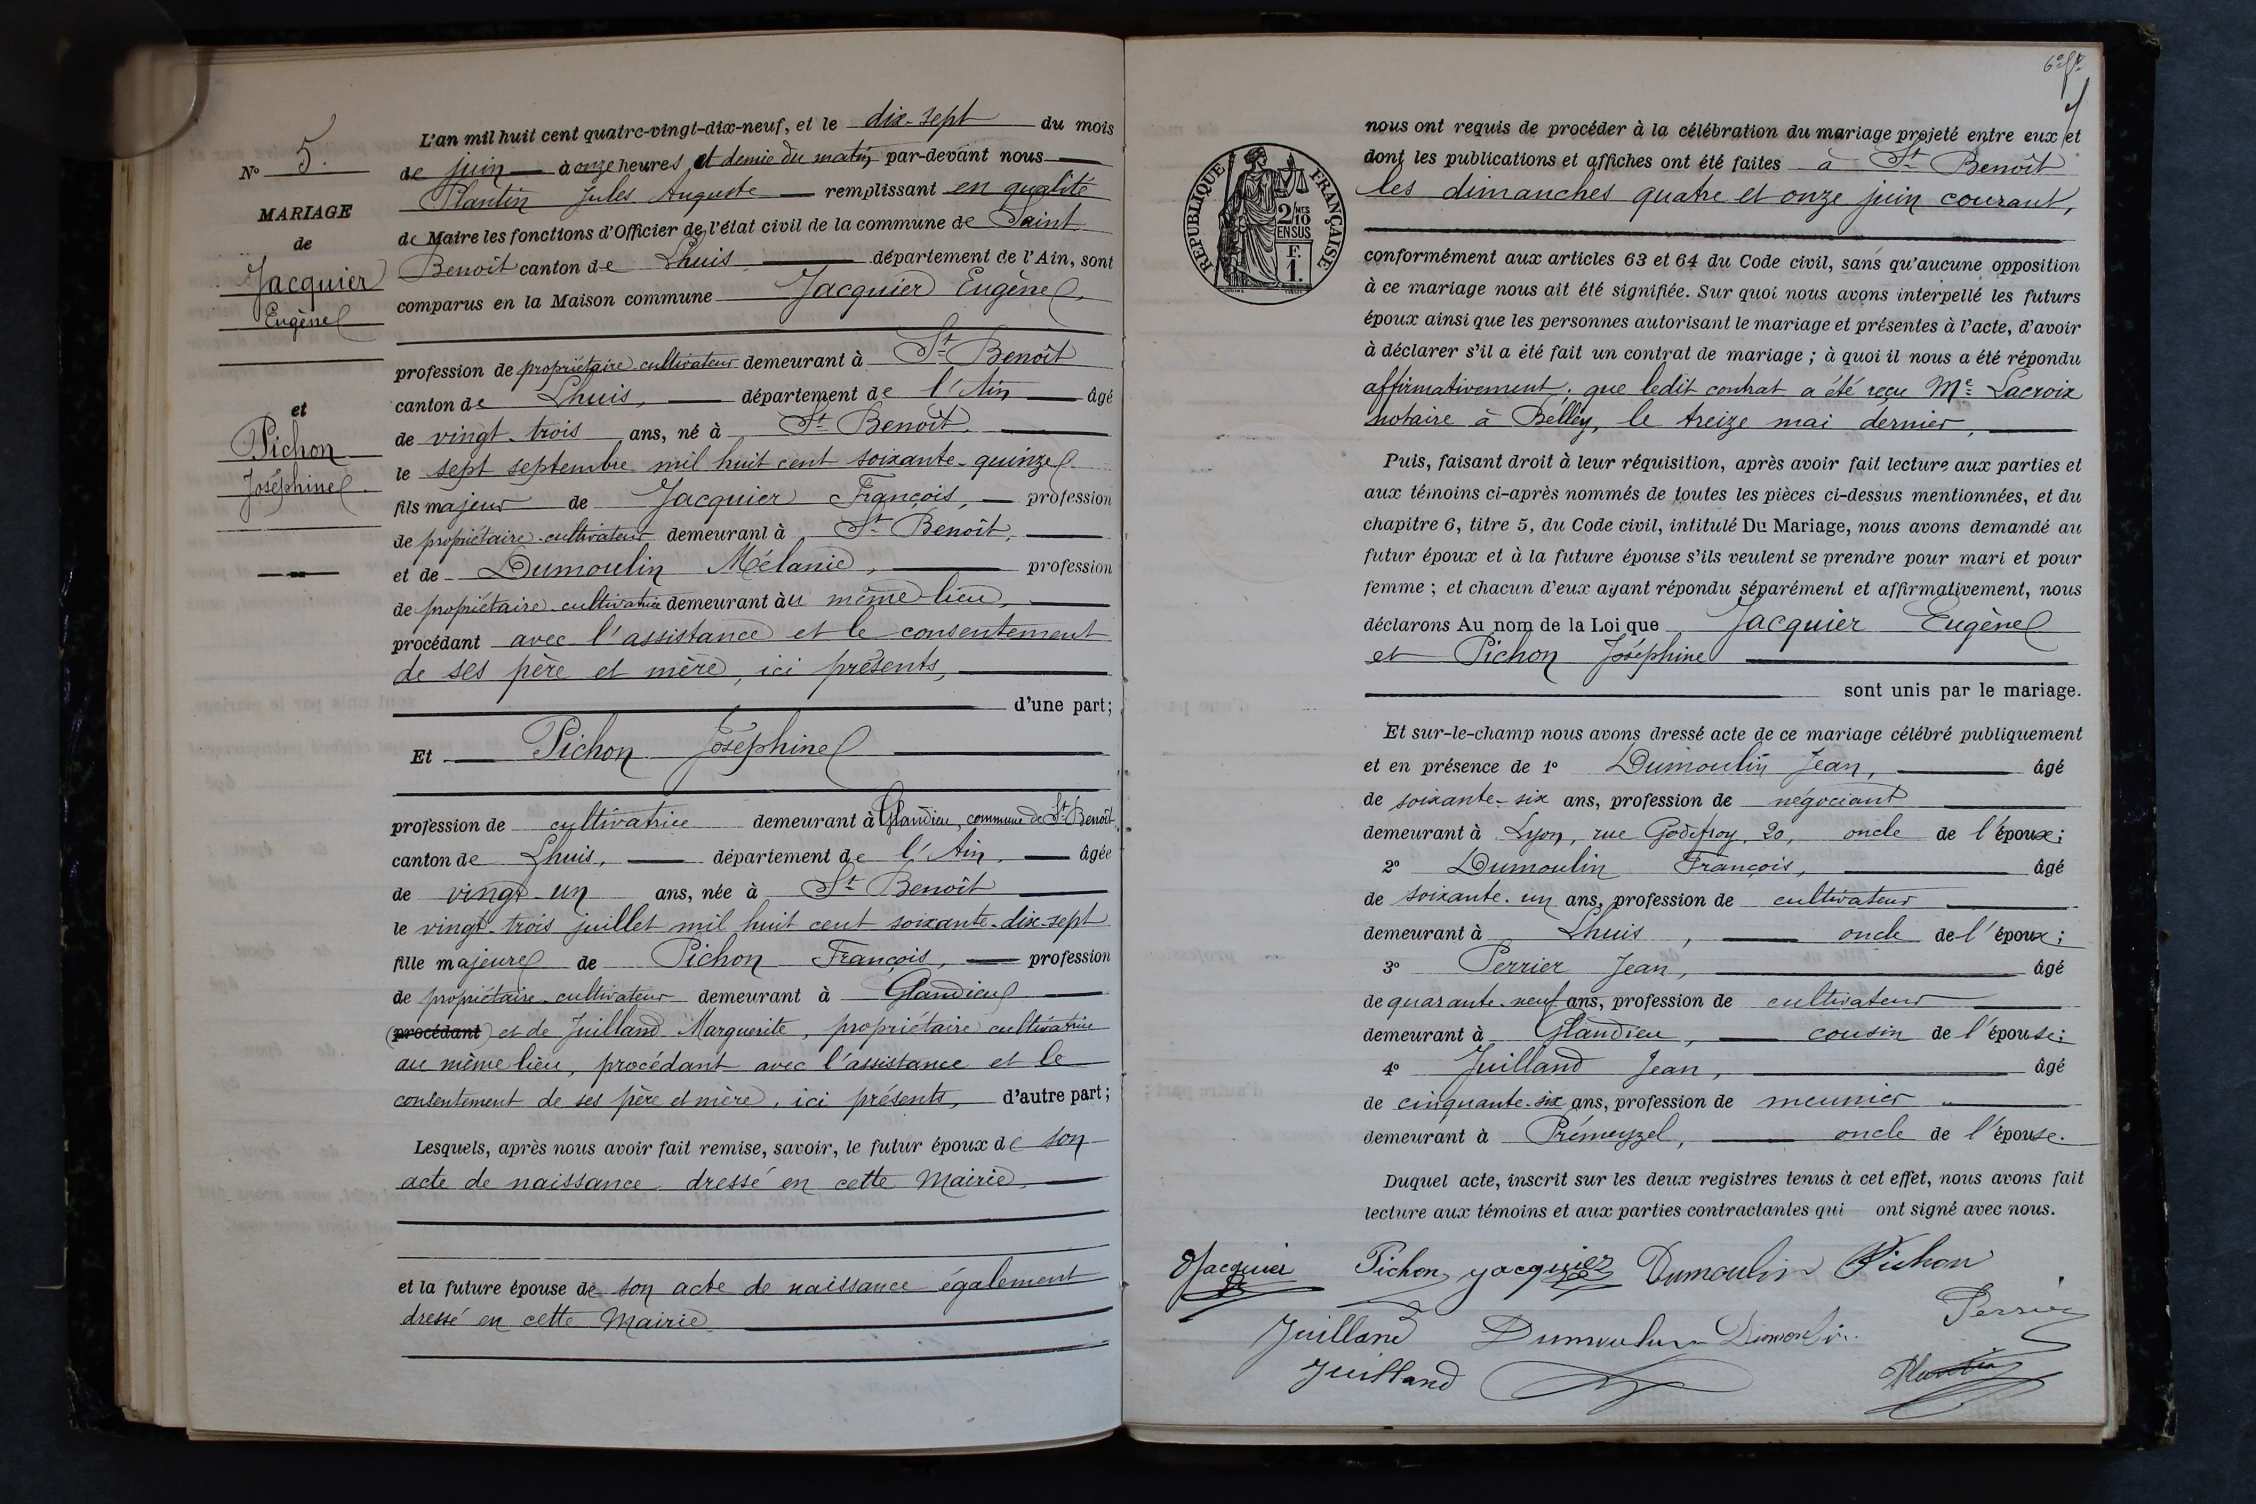 N° 5.
MARIAGE
de
Jacquier
Eugène
et
Pichon
Joséphine
L'an mil huit cent quatre-vingt-dix-neuf, et le dix-sept du mois
de juin à onze heures et demie du matin par-devant nous
Plantin Jules Auguste remplissant en qualité
de Maire les fonctions d'Officier de l'état civil de la commune de Saint
Benoît canton de Lhuis département de l'Ain, sont
comparus en la Maison commune Jacquier Eugène,
profession de propriétaire cultivateur demeurant à St Benoît
canton de Lhuis, département de l'Ain âgé
de vingt-trois ans, né à St Benoît
le sept septembre mil huit cent soixante-quinze
fils majeur de Jacquier François, profession
de propriétaire-cultivateur demeurant à St Benoît,
et de Dumoulin Mélanie, profession
de propriétaire-cultivatrice demeurant au même lieu,
procédant avec l'assistance et le consentement
de ses père et mère, ici présents,
d'une part;
Et Pichon Joséphine
profession de cultivatrice demeurant à Glandieu, commune de St Benoît
canton de Lhuis, département de l'Ain, âgée
de vingt-un ans, née à St Benoît
le vingt-trois juillet mil huit cent soixante-dix-sept
fille majeure de Pichon François, profession
de propriétaire-cultivateur demeurant à Glandieu
(procédant) et de Juilland Marguerite, propriétaire cultivatrice
au même lieu, procédant avec l'assistance et le
consentement de ses père et mère, ici présents, d'autre part;
Lesquels, après nous avoir fait remise, savoir, le futur époux de son
acte de naissance dressé en cette Mairie,
et la future épouse de son acte de naissance également
dressé en cette Mairie
RÉPUBLIQUE FRANÇAISE
2/10 MES
EN SUS
F.
1.
nous ont requis de procéder à la célébration du mariage projeté entre eux et
dont les publications et affiches ont été faites à St Benoît
les dimanches quatre et onze juin courant,
conformément aux articles 63 et 64 du Code civil, sans qu'aucune opposition
à ce mariage nous ait été signifiée. Sur quoi nous avons interpellé les futurs
époux ainsi que les personnes autorisant le mariage et présentes à l'acte, d'avoir
à déclarer s'il a été fait un contrat de mariage ; à quoi il nous a été répondu
affirmativement ; que ledit contrat a été reçu Me Lacroix
notaire à Belley, le treize mai dernier,
Puis, faisant droit à leur réquisition, après avoir fait lecture aux parties et
aux témoins ci-après nommés de toutes les pièces ci-dessus mentionnées, et du
chapitre 6, titre 5, du Code civil, intitulé Du Mariage, nous avons demandé au
futur époux et à la future épouse s'ils veulent se prendre pour mari et pour
femme ; et chacun d'eux ayant répondu séparément et affirmativement, nous
déclarons Au nom de la Loi que Jacquier Eugène
et Pichon Joséphine
sont unis par le mariage.
Et sur-le-champ nous avons dressé acte de ce mariage célébré publiquement
et en présence de 1° Dumoulin Jean, âgé
de soixante-six ans, profession de négociant
demeurant à Lyon, rue Godefroy, 20, oncle de l'époux;
2° Dumoulin François, âgé
de soixante-un ans, profession de cultivateur
demeurant à Lhuis, oncle de l'époux;
3° Perrier Jean, âgé
de quarante-neuf ans, profession de cultivateur
demeurant à Glandieu, cousin de l'épouse;
4° Juilland Jean, âgé
de cinquante-six ans, profession de meunier
demeurant à Prémeyzel, oncle de l'épouse.
Duquel acte, inscrit sur les deux registres tenus à cet effet, nous avons fait
lecture aux témoins et aux parties contractantes qui ont signé avec nous.
Jacquier Pichon Jacquier Dumoulin Pichon
Perrier
Juilland Dumoulin Dumoulin
Juilland Plantin